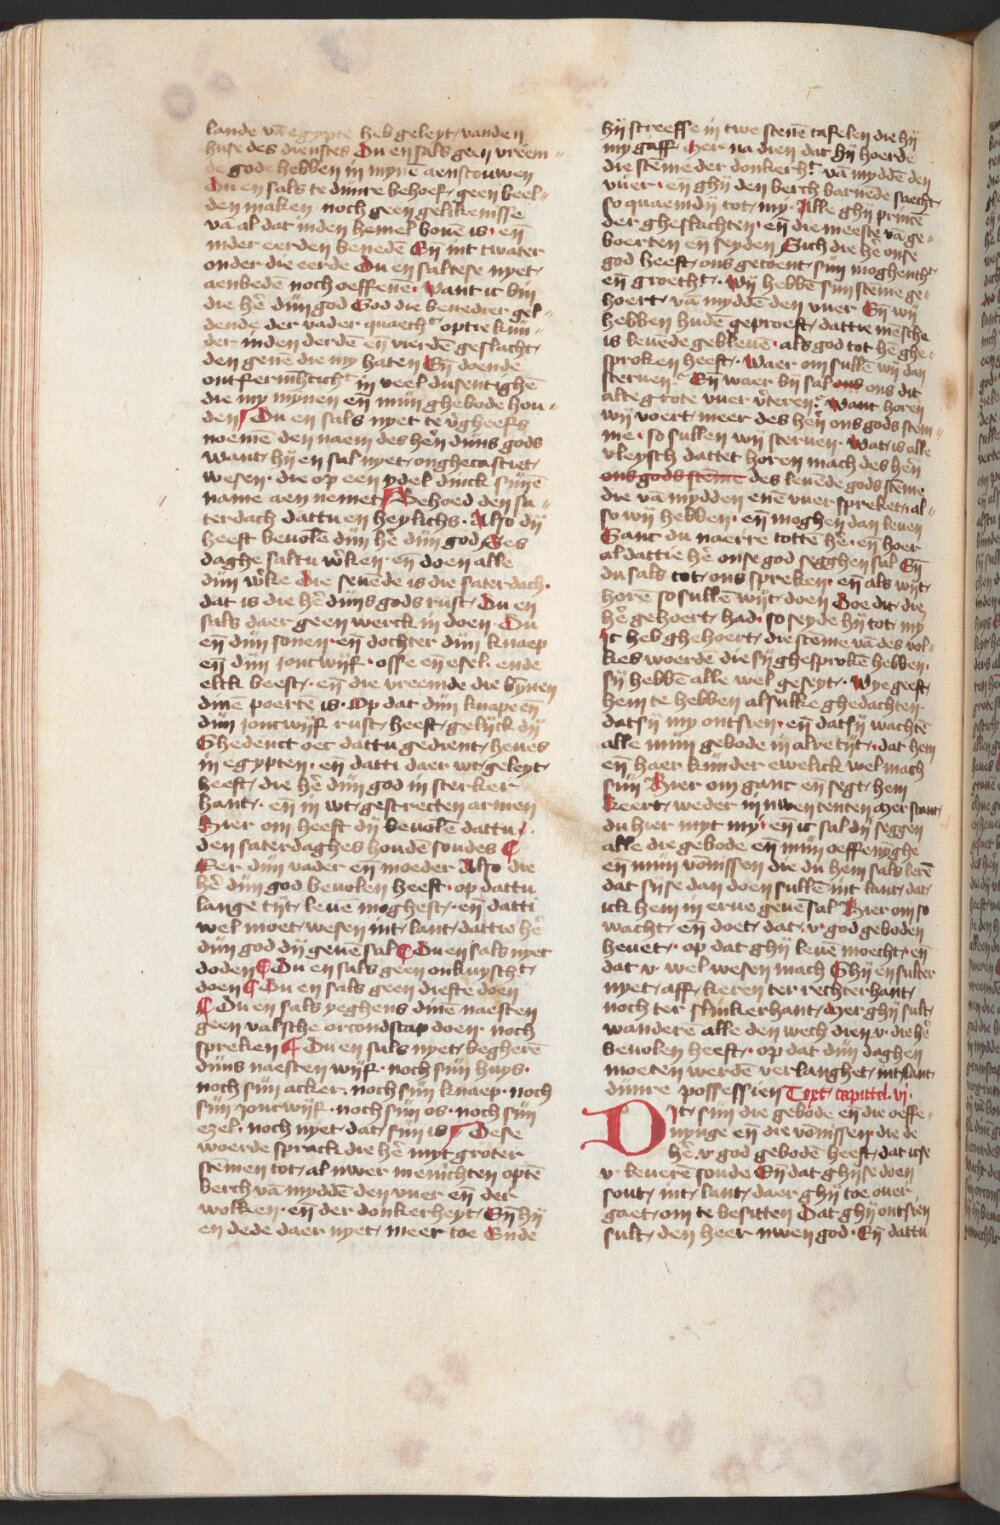 lande vā egypte heb geleyt vanden
huse des dienstes Du en sals geen vreem
de gode hebben in mynē aenscouwen
Du en sals te dynre behoef geen beel
den maken noch geen gelikenisse
vā al dat inden hemel bouē is · eñ
inder eerden benedē Eñ int twater
onder die eerde Du en saltese nyet
aenbedē noch oeffene · want ic bin
die hē dijn god God die benedier gel
dende der vader quaecht optie kijn
der inden derdē eñ vierdē geslacht
den genē die my haten Eñ doende
ontfermhticht in veel dusentighē
die my mynen eñ mijn ghebode hou
den Du en sals nyet te vgheefs
noemē den naem des hen dijns gods
want hij en sal nyet onghecastiet
wesen · die op een ydel dinck sijnē
name aen nemet Behoed den sa
terdach dattu en heylichs · Also dij
heeft beuolē dijn hē dijn god Ses
daghe saltu wken · eñ doen alle
dijn wke Die seuēde is die saterdach ·
dat is die hē dijns gods rust Du en
sals daer geen werck in doen Du
eñ dijn sonen · eñ dochter dijn knaep
eñ dijn joncwijf · osse en esel · ende
elck beest · eñ die vreemde die bynen
dinē poertē is · Op dat dijn knape eñ
dijn joncwijf rust heeft gelijck dij
Ghedenct oec dattu gedient heues
in egypten · eñ datti daer wt geleyt
heeft die hē dijn god in stercker
hant · eñ in wt gestrecten armen
Hier om heeft dij beuolē dattu
den saterdaghes houdē soudes
Eer dijn vader eñ moeder Also die
hē dijn god beuolen heeft · op dattu
lange tijt leuē moghest · eñ datti
wel moet wesen int lant dattie hē
dijn god dij geuē sal Du en sals nyet
doden Du en sals geen onkuyscht
doen Du en sals geen diefte doen
Du en sals yeghens dinē naesten
geen valsche orcondscap doen noch
spreken Du en suls nyet begherē
dijns naesten wijf · noch sijn huys ·
noch sijn acker · noch sijn knaep · noch
sijn joncwijf · noch sijn os · noch sijn
ezel · noch nyet dat sijn is Dese
woerde sprack die hē myt groter
stemen tot al uwer menichten optē
berch vā myddē den vuer eñ der
wolken · eñ der donkerheyt Eñ hij
en dede daer nyet meer toe Ende
hij screeffe in twe stenē tafelen die hij
my gaff Mer na dien dat hij hoerde
die stēme der donkerht vā myddē den
vuer · en ghij den berch barnēde saecht
so quaemdij tot my · Alle ghij princē
der gheslachten · eñ die meeste vā ge
boerten eñ seyden Sich die hē onse
god heeft ons getoent sijn moghentht
eñ groetht · Wij hebbē sijn stēme ge
hoert vā myddē den vuer Eñ wij
hebben hudē geproeft dattie mēsche
is leuēde gebleuē · als god tot hē ghe
sproken heeft · Waer om sullē wij dan
steruen Eñ waer bij sal ons ons dit
alte grote vuer vteren Want horen
wij voert meer des hen ons gods stem
me · so sullen wij steruen · Wat is alle
vleysch dattet horen mach des hen
ons gods stēme des leuēde gods stēme
die vā mydden enē vuer spreket al
so wij hebben · eñ moghen dan leuen
Ganc du naerre totten hē · eñ hoer
al dattie hē onse god segghen sal Eñ
du sals tot ons spreken · eñ als wijt
horē so sullē wijt doen Doe dit die
hē gehoert had · so seyde hij tot my
Ic heb ghehoert die stēme vā des vol
kes woerdē die sij ghesprokē hebben ·
sij hebbē alle wel geseyt · Wye geeft
hem te hebben alsulke ghedachten
dat sij my ontsien · eñ dat sij wachtē
alle mijn gebode in alre tijt · dat hem
eñ haer kijnder ewelick wel mach
sijn Hier om ganc eñ segt hem
Keert weder in uwen tenten Mer stant
du hier myt my · eñ ic sal dij seggen
alle die gebode eñ mijn oeffenyghe
eñ mijn vōnissen die du hem sals lerē
dat sijse dan doen sullē int lant dat
ick hem in erue geuē sal Hier om so
wacht eñ doet dat v · god geboden
heuet · op dat ghij leuē moecht · eñ
dat v · wel wesen mach Ghij en sulter
nyet aff keren ter rechterhant
noch ter slinkerhant Mer ghij sult
wanderē alle den wech dien v · die hē
beuolen heeft · op dat dijn daghen
moeten werdē verlanghet int lant
dijnre possessien Text capittel · vj ·
Dit sijn die gebode eñ die oeffe
nynge eñ die vōnissen die de
hē v god gebodē heeft dat icse
v · leuerē soude Eñ dat ghijse doen
sout int lant daer ghij toe ouer
gaet om te besitten Dat ghij ontsien
sult den heer uwen god · Eñ dattu